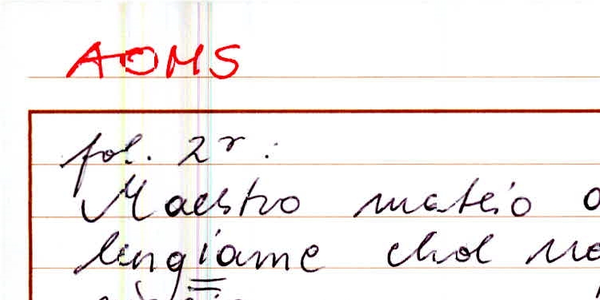 AOMS
fol. 2r:
Maestro mateio
lengiame chol